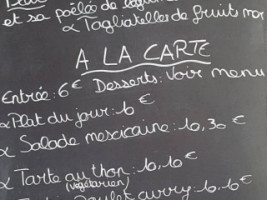 et sa poêlée de légumes
α Tagliatelles de fruit mer
A LA CARTE
Entrée : 6€ Desserts : Voir menu
α Plat du jour : 10 €
α Salade mexicaine : 10,30 €
α Tarte au thon : 10,10 €
(végétarien)
Poulet curry : 10,10 €